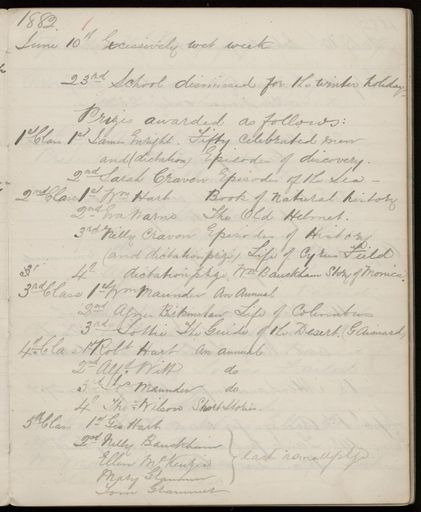 1882
June 10th Excessively wet week
23rd School dismissed for the winter holidays
Prizes awarded as follows:
1st Class 1st James Enright. Fifty celebrated men
and (dictation) Episodes of discovery.
2nd Sarah Craven Episodes of the Sea -
2nd Class 1st Wm Hart Book of Natural history
2nd Eva Warne The Old Helmet.
3rd Nelly Craven Episodes of History
(and dictation prize) Life of Cyrus Field
4th dictation prize Wm Bauckham Story of Monica
3rd Class 1st Wm Maunder An Annual
2nd Birkmester Life of Columbus
3rd Lottie The Guide of the Desert
4th Class 1st Robt Hart An annual
2nd Alft Witt do
3rd Maunder do
4th Thos Wilson Short Stories.
5th Class 1st Geo Hart
2nd Nelly Bauckham
Ellen McKenzie } each
Mary
Tom